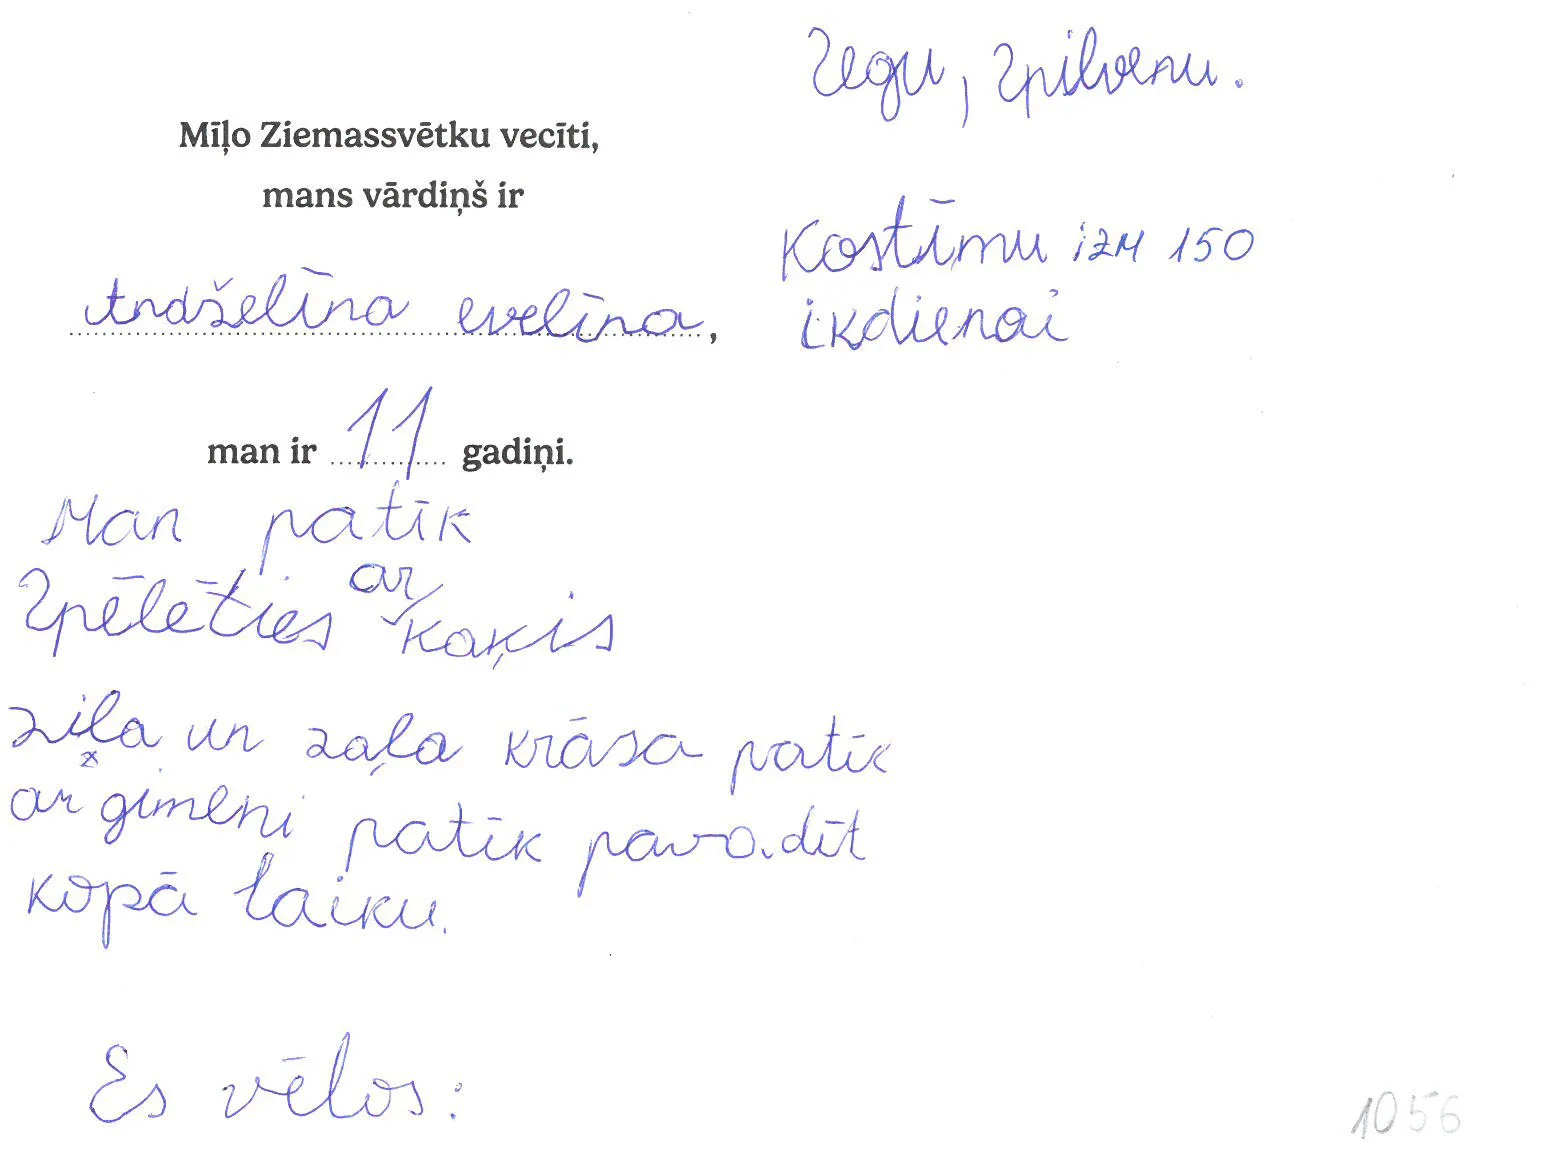 Mīļo Ziemassvētku vecīti,
mans vārdiņš ir
Andželīna evelīna,
man ir 11 gadiņi.
Man patīk
Spēlēties ar kaķis
ziļa un zaļa krāsa patīk
ar gimeni patīk pavadīt
kopā laiku.
Es vēlos:
Segu, Spilvenu.
Kostīmu izm 150
ikdienai
1056